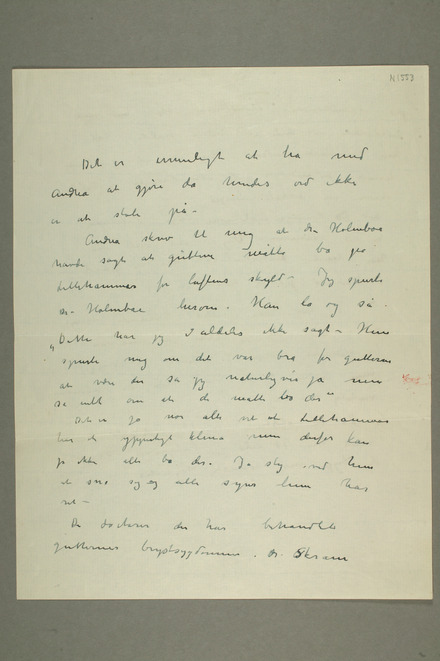 N 1553
Det er umuligt at ha med
Andrea at gjøre da hendes ord ikke
er at stole på –
Andrea skrev til mig at dr Holmboe
havde sagt at guttene måtte bo på
Lillehammer for luftens skyld – Jeg spurte
dr. Holmboe herom. Han lo og sa
"Dette har jeg aldeles ikke sagt – Hun
spurte mig om det var bra for guttene
at være der sa jeg naturligvis ja men
sa intet om at de måtte bo der"
Det er jo noe alle vet at Lillehammer
har et ypperligt klima men derfor kan
jo ikke alle bo der. Ja slig ved hun
at sno sig og alle synes hun har
ret –
De doctorer der har behandlet
gutternes brystsygdomme. Dr. Skram